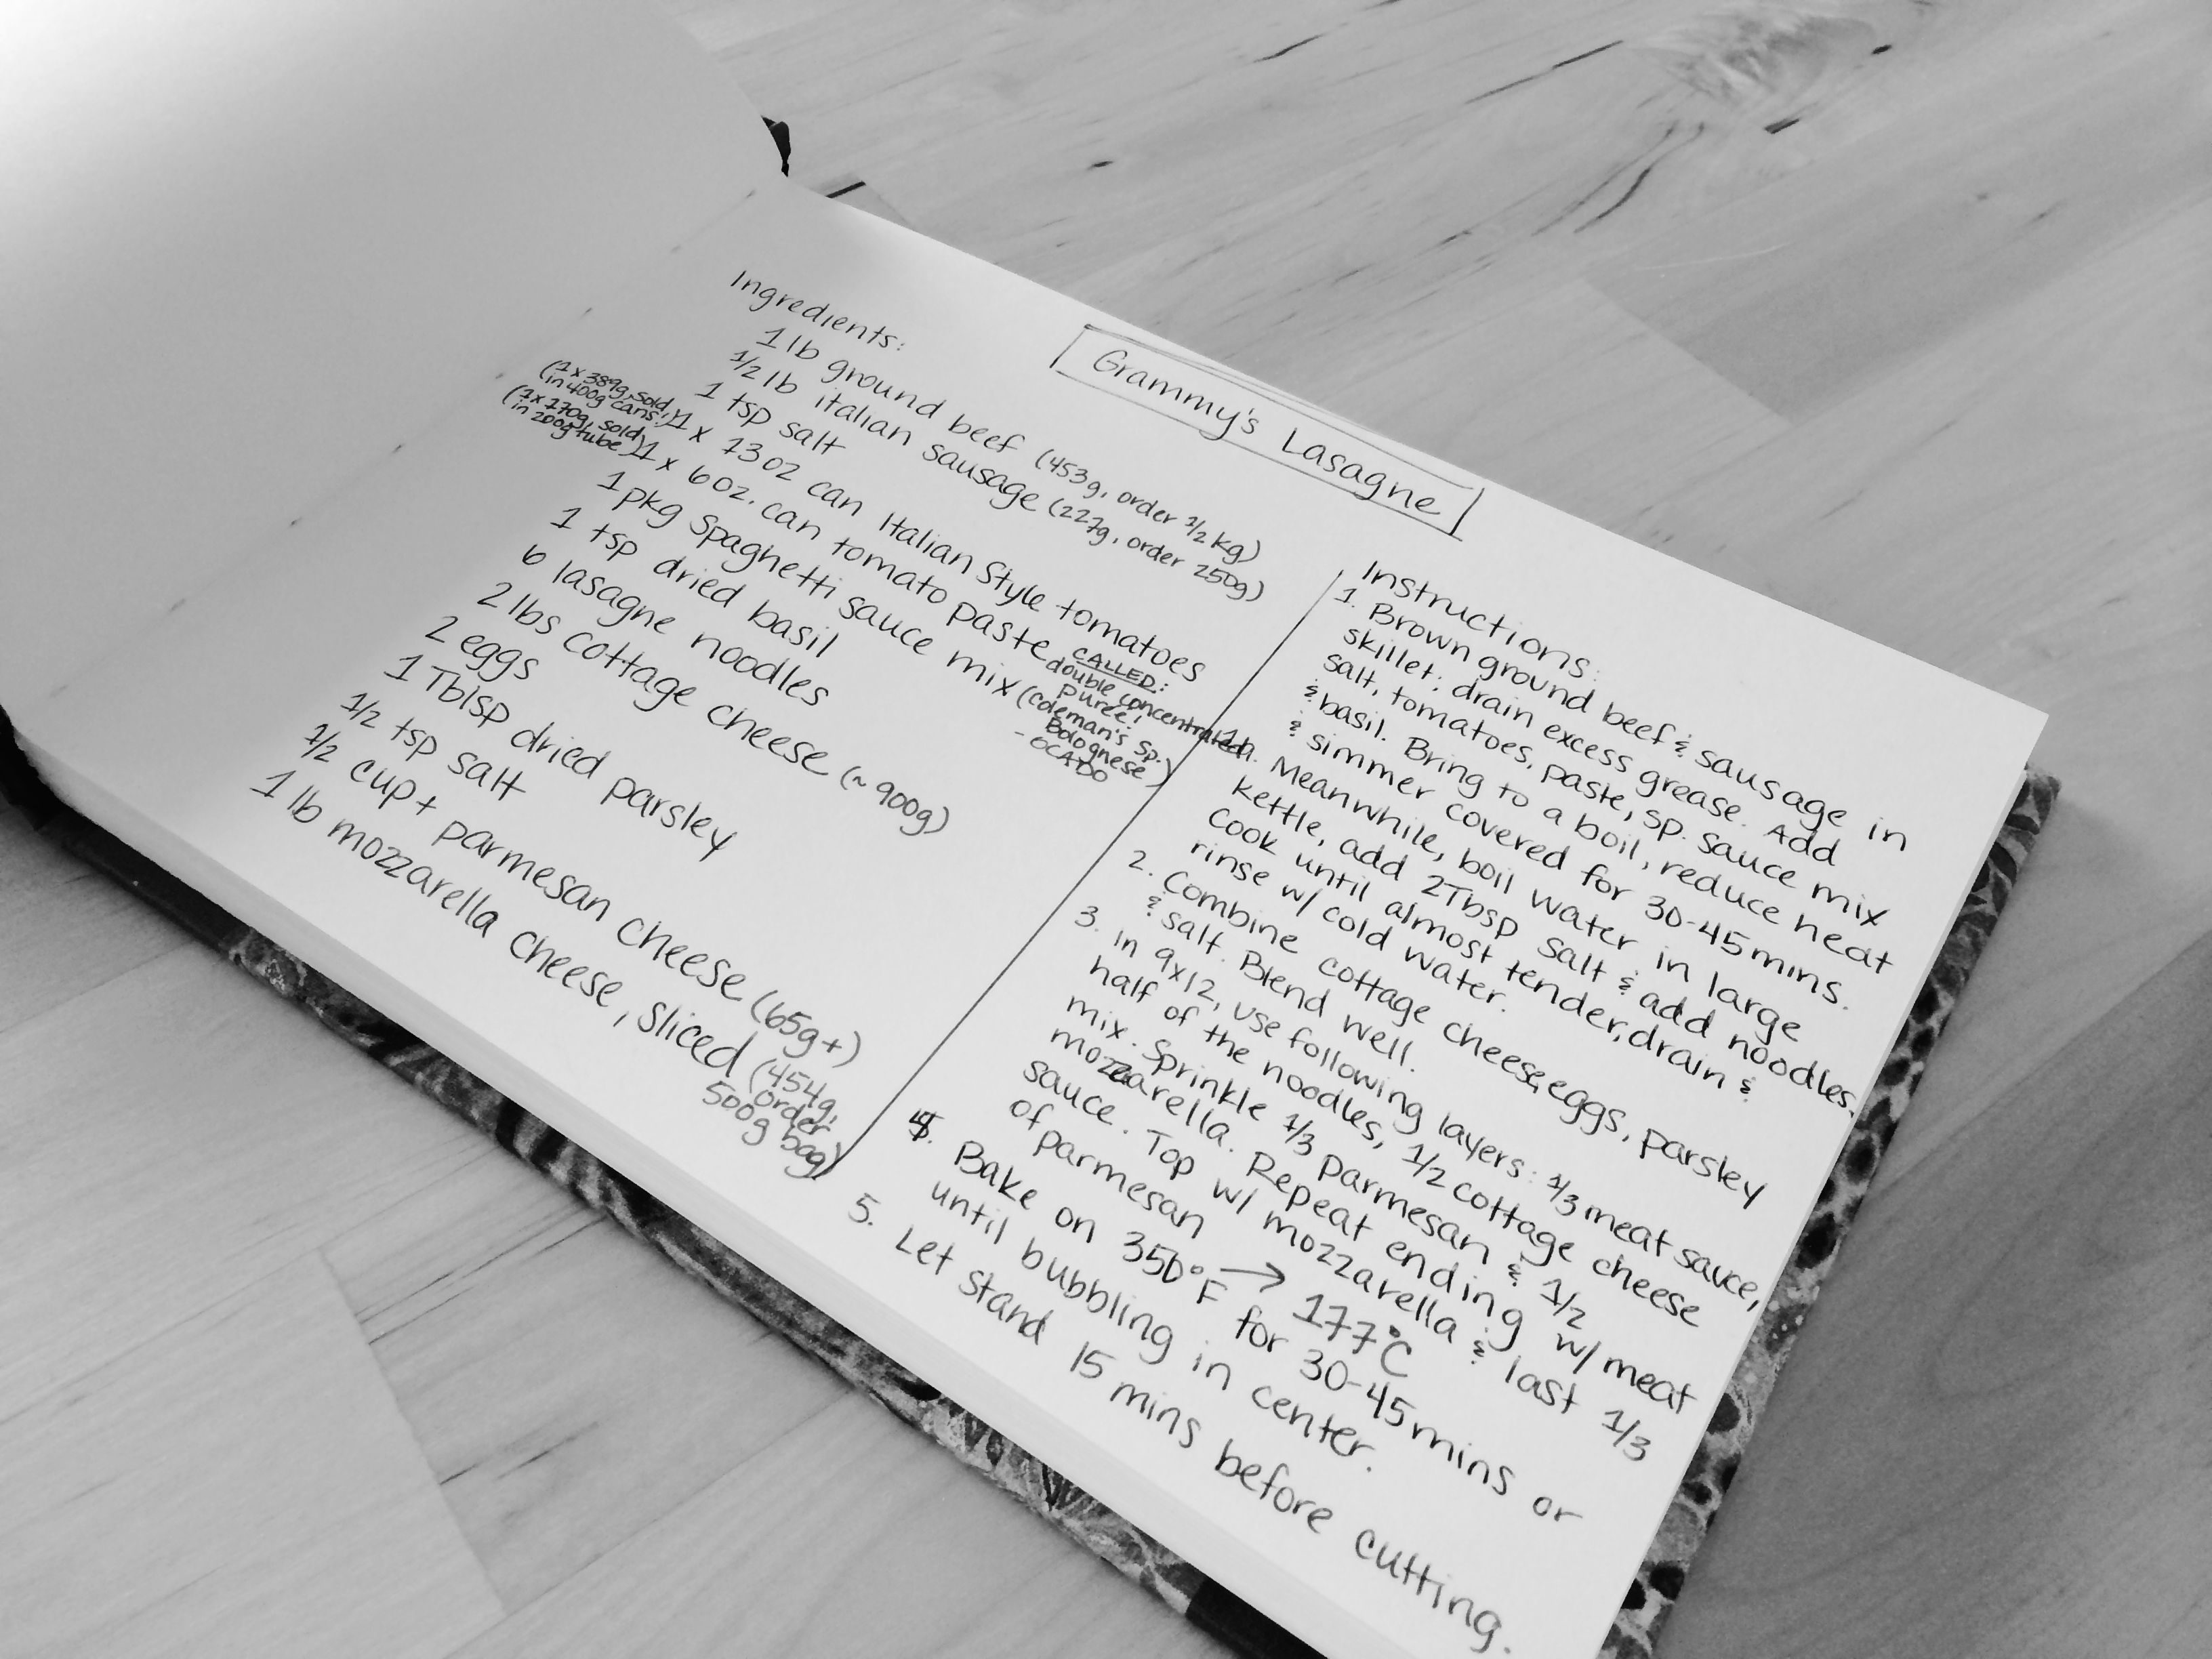 Grammy's Lasagne
Ingredients:
1 lb ground beef (453g, order 1/2 kg)
1/2 lb italian sausage (227g, order 250g)
1 tsp salt
(1 x 389g, sold
in 400g cans!)
1 x 13oz can Italian Style tomatoes
(1x170g, sold
in 200g tube)
1 x 6oz. can tomato paste
CALLED:
double concentrated
Purée!
1 pkg spaghetti sauce mix (Coleman's Sp.
Bolognese)
- OCADO
1 tsp dried basil
6 lasagne noodles
2 lbs cottage cheese (~900g)
2 eggs
1 Tblsp dried parsley
1/2 tsp salt
1/2 cup + parmesan cheese (65g+)
1 lb mozzarella cheese, sliced (454g,
order
500g bag)
Instructions:
1. Brown ground beef & sausage in
skillet; drain excess grease. Add
salt, tomatoes, paste, sp. sauce mix
& basil. Bring to a boil, reduce heat
& simmer covered for 30-45 mins.
1a. Meanwhile, boil water in large
kettle, add 2Tbsp salt & add noodles.
Cook until almost tender, drain &
rinse w/ cold water.
2. Combine cottage cheese, eggs, parsley
& salt. Blend well.
3. In 9x12, use following layers: 1/3 meat sauce,
half of the noodles, 1/2 cottage cheese
mix. Sprinkle 1/3 parmesan & 1/2
mozzarella. Repeat ending w/ meat
sauce. Top w/ mozzarella & last 1/3
of parmesan
4. Bake on 350°F → 177°C for 30-45 mins or
until bubbling in center.
5. Let stand 15 mins before cutting.